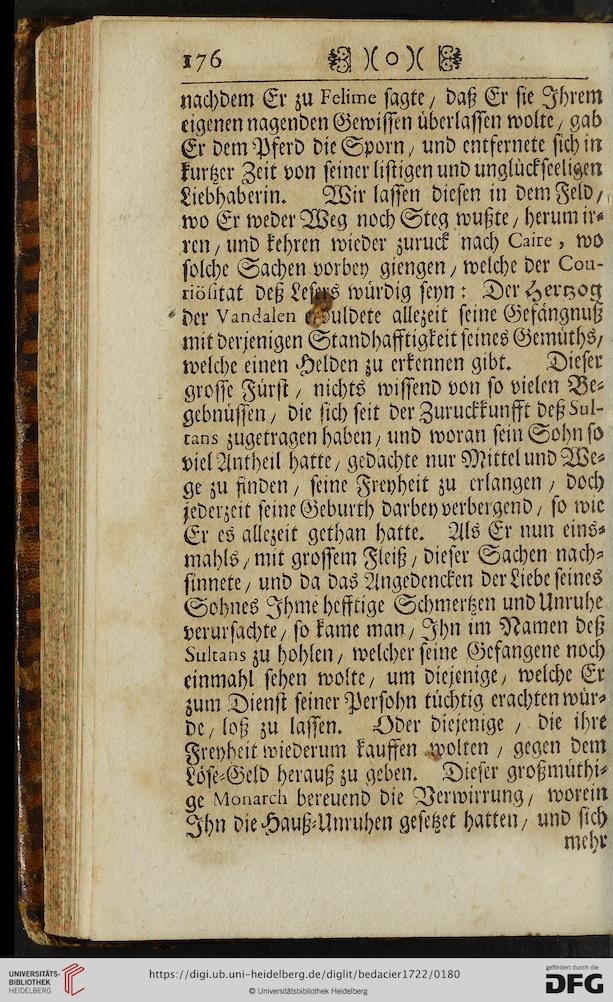 176 )( o )(
nachdem Er zu Felime sagte / daß Er sie Ihrem
eigenen nagenden Gewissen überlassen wolte / gab
Er dem Pferd die Sporn / und entfernete sich in
kurtzer Zeit von seiner listigen und unglückseeligen
Liebhaberin. Wir lassen diesen in dem Feld /
wo Er weder Weg noch Steg wußte / herum ir⸗
ren / und kehren wieder zuruck nach Caire, wo
solche Sachen vorbey giengen / welche der Cou-
riösitat deß Lesers würdig seyn: Der Hertzog
der Vandalen erduldete allezeit seine Gefängnuß
mit derjenigen Standhafftigkeit seines Gemüths /
welche einen Helden zu erkennen gibt. Dieser
grosse Fürst / nichts wissend von so vielen Be⸗
gebnüssen / die sich seit der Zuruckkunfft deß Sul-
tans zugetragen haben / und woran sein Sohn so
viel Antheil hatte / gedachte nur Mittel und We⸗
ge zu finden / seine Freyheit zu erlangen / doch
jederzeit seine Geburth darbey verbergend / so wie
Er es allezeit gethan hatte. Als Er nun eins⸗
mahls / mit grossem Fleiß / dieser Sachen nach⸗
sinnete / und da das Angedencken der Liebe seines
Sohnes Ihme hefftige Schmertzen und Unruhe
verursachte / so kame man / Ihn im Namen deß
Sultans zu hohlen / welcher seine Gefangene noch
einmahl sehen wolte / um diejenige / welche Er
zum Dienst seiner Persohn tüchtig erachten wür⸗
de / loß zu lassen. Oder diejenige / die ihre
Freyheit wiederum kauffen wolten / gegen dem
Löse⸗Geld herauß zu geben. Dieser großmüthi⸗
ge Monarch bereuend die Verwirrung / worein
Ihn die Hauß⸗Unruhen gesetzet hatten / und sich
mehr
UNIVERSITÄTS-
BIBLIOTHEK
HEIDELBERG
https://digi.ub.uni-heidelberg.de/diglit/bedacier1722/0180
© Universitätsbibliothek Heidelberg
gefördert durch die
DFG